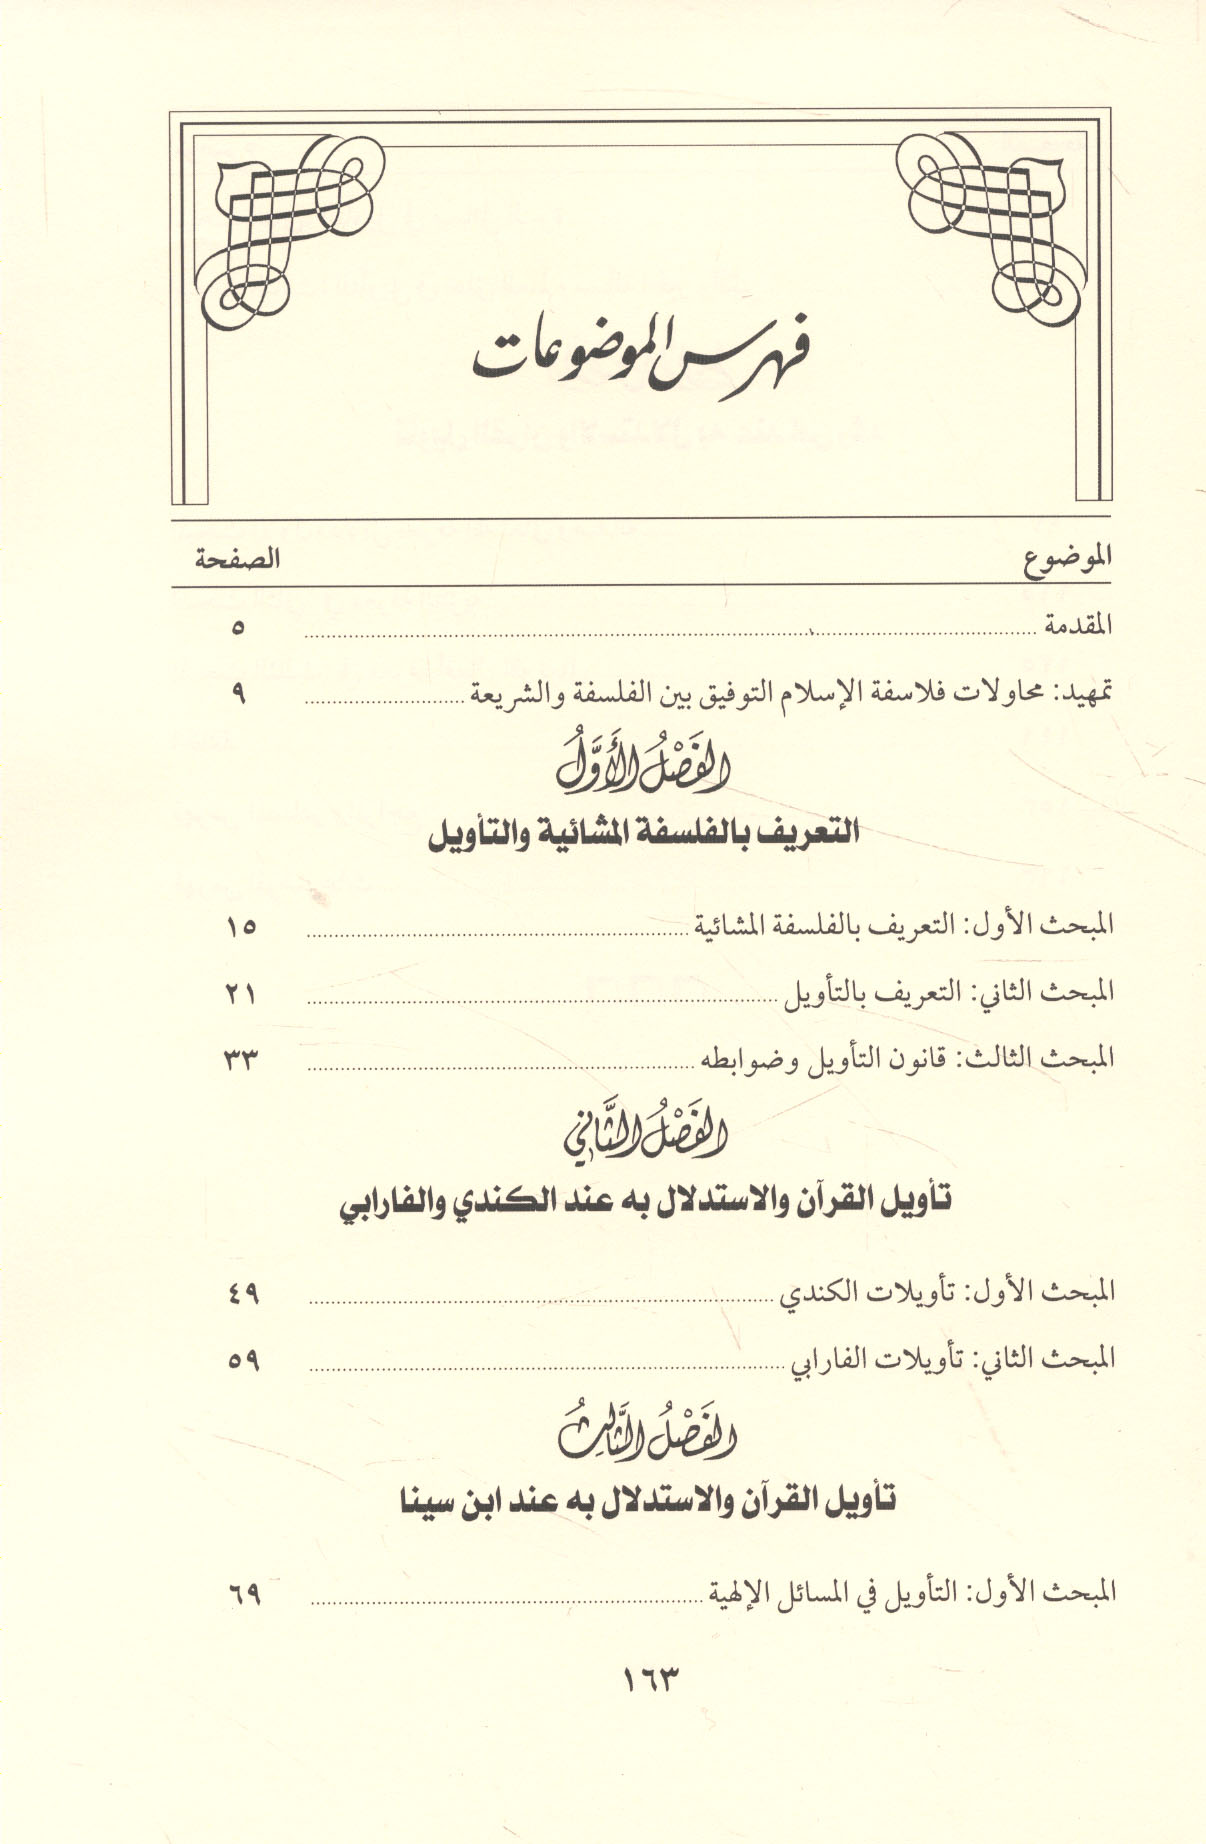 فهرس الموضوعات
الموضوع الصفحة
المقدمة ٥
تمهيد: محاولات فلاسفة الإسلام التوفيق بين الفلسفة والشريعة ٩
الفَصْلُ الأَوَّلُ
التعريف بالفلسفة المشائية والتأويل
المبحث الأول: التعريف بالفلسفة المشائية ١٥
المبحث الثاني: التعريف بالتأويل ٢١
المبحث الثالث: قانون التأويل وضوابطه ٣٣
الفَصْلُ الثَّانِي
تأويل القرآن والاستدلال به عند الكندي والفارابي
المبحث الأول: تأويلات الكندي ٤٩
المبحث الثاني: تأويلات الفارابي ٥٩
الفَصْلُ الثَّالِثُ
تأويل القرآن والاستدلال به عند ابن سينا
المبحث الأول: التأويل في المسائل الإلهية ٦٩
١٦٣